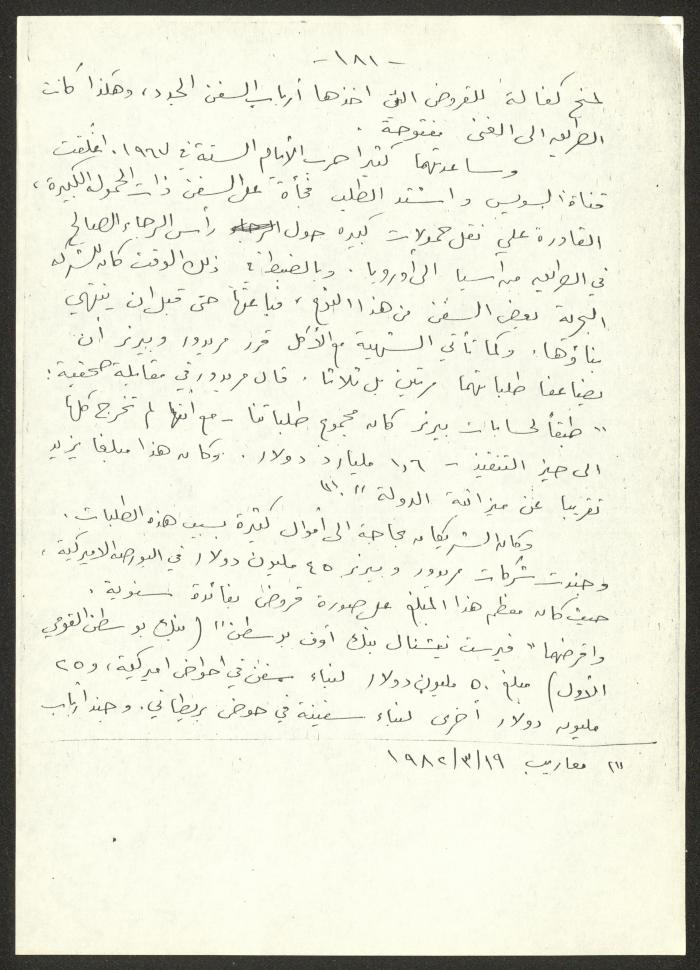 - ١٨١ -
لمنح كفالة للقروض التي اخذها أرباب السفن الجدد، وهكذا كانت
الطريق الى الغنى مفتوحة .
وساعدتهما كثيرا حرب الأيام الستة في ١٩٦٧. اغلقت
قناة السويس واشتد الطلب فجأة على السفن ذات الحمولة الكبيرة،
القادرة على نقل حمولات كبيرة حول رأس الرجاء الصالح
في الطريق من اسيا الى أوروبا . وبالضبط في ذلك الوقت كان للشركة
البحرية بعض السفن من هذا النوع، فباعتها حتى قبل ان ينتهي
بناؤها. وكما تأتي الشهية مع الأكل قرر مريدور وبيرنر أن
يضاعفا طلباتهما مرتين بل ثلاثا . قال مريدور في مقابلة صحفية:
" طبقاً لحسابات بيرنر كان مجموع طلباتنا - مع أنها لم تخرج كلها
الى حيز التنفيذ - ١,٦ مليارد دولار . وكان هذا مبلغا يزيد
تقريبا عن ميزانية الدولة ". (٢١)
وكان الشريكان بحاجة الى أموال كثيرة بسبب هذه الطلبات .
وجندت شركات مريدور وبيرنر ٤٥ مليون دولار في البورصة الاميركية،
حيث كان معظم هذا المبلغ على صورة قروض بفائدة سنوية .
واقرضهما " فيرست نيشنال بنك أوف بوسطن " ( بنك بوسطن القومي
الأول ) مبلغ ٥٠ مليون دولار لبناء سفن في احواض اميركية، و ٢٥
مليون دولار أخرى لبناء سفينة في حوض بريطاني. وجند أرباب
(٢١ معاريب ١٩٨٢/٣/١٩